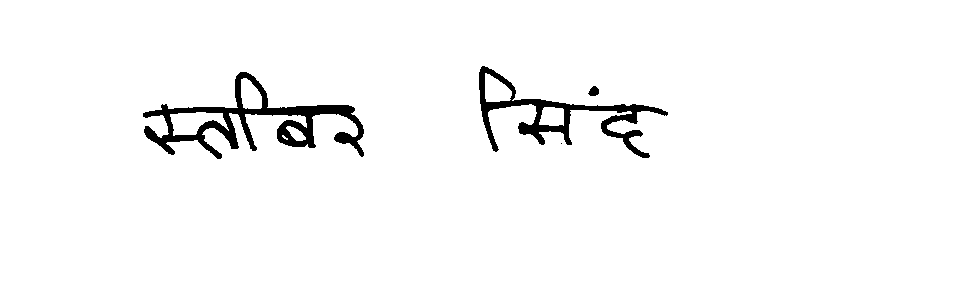 स्तीबर सिंह